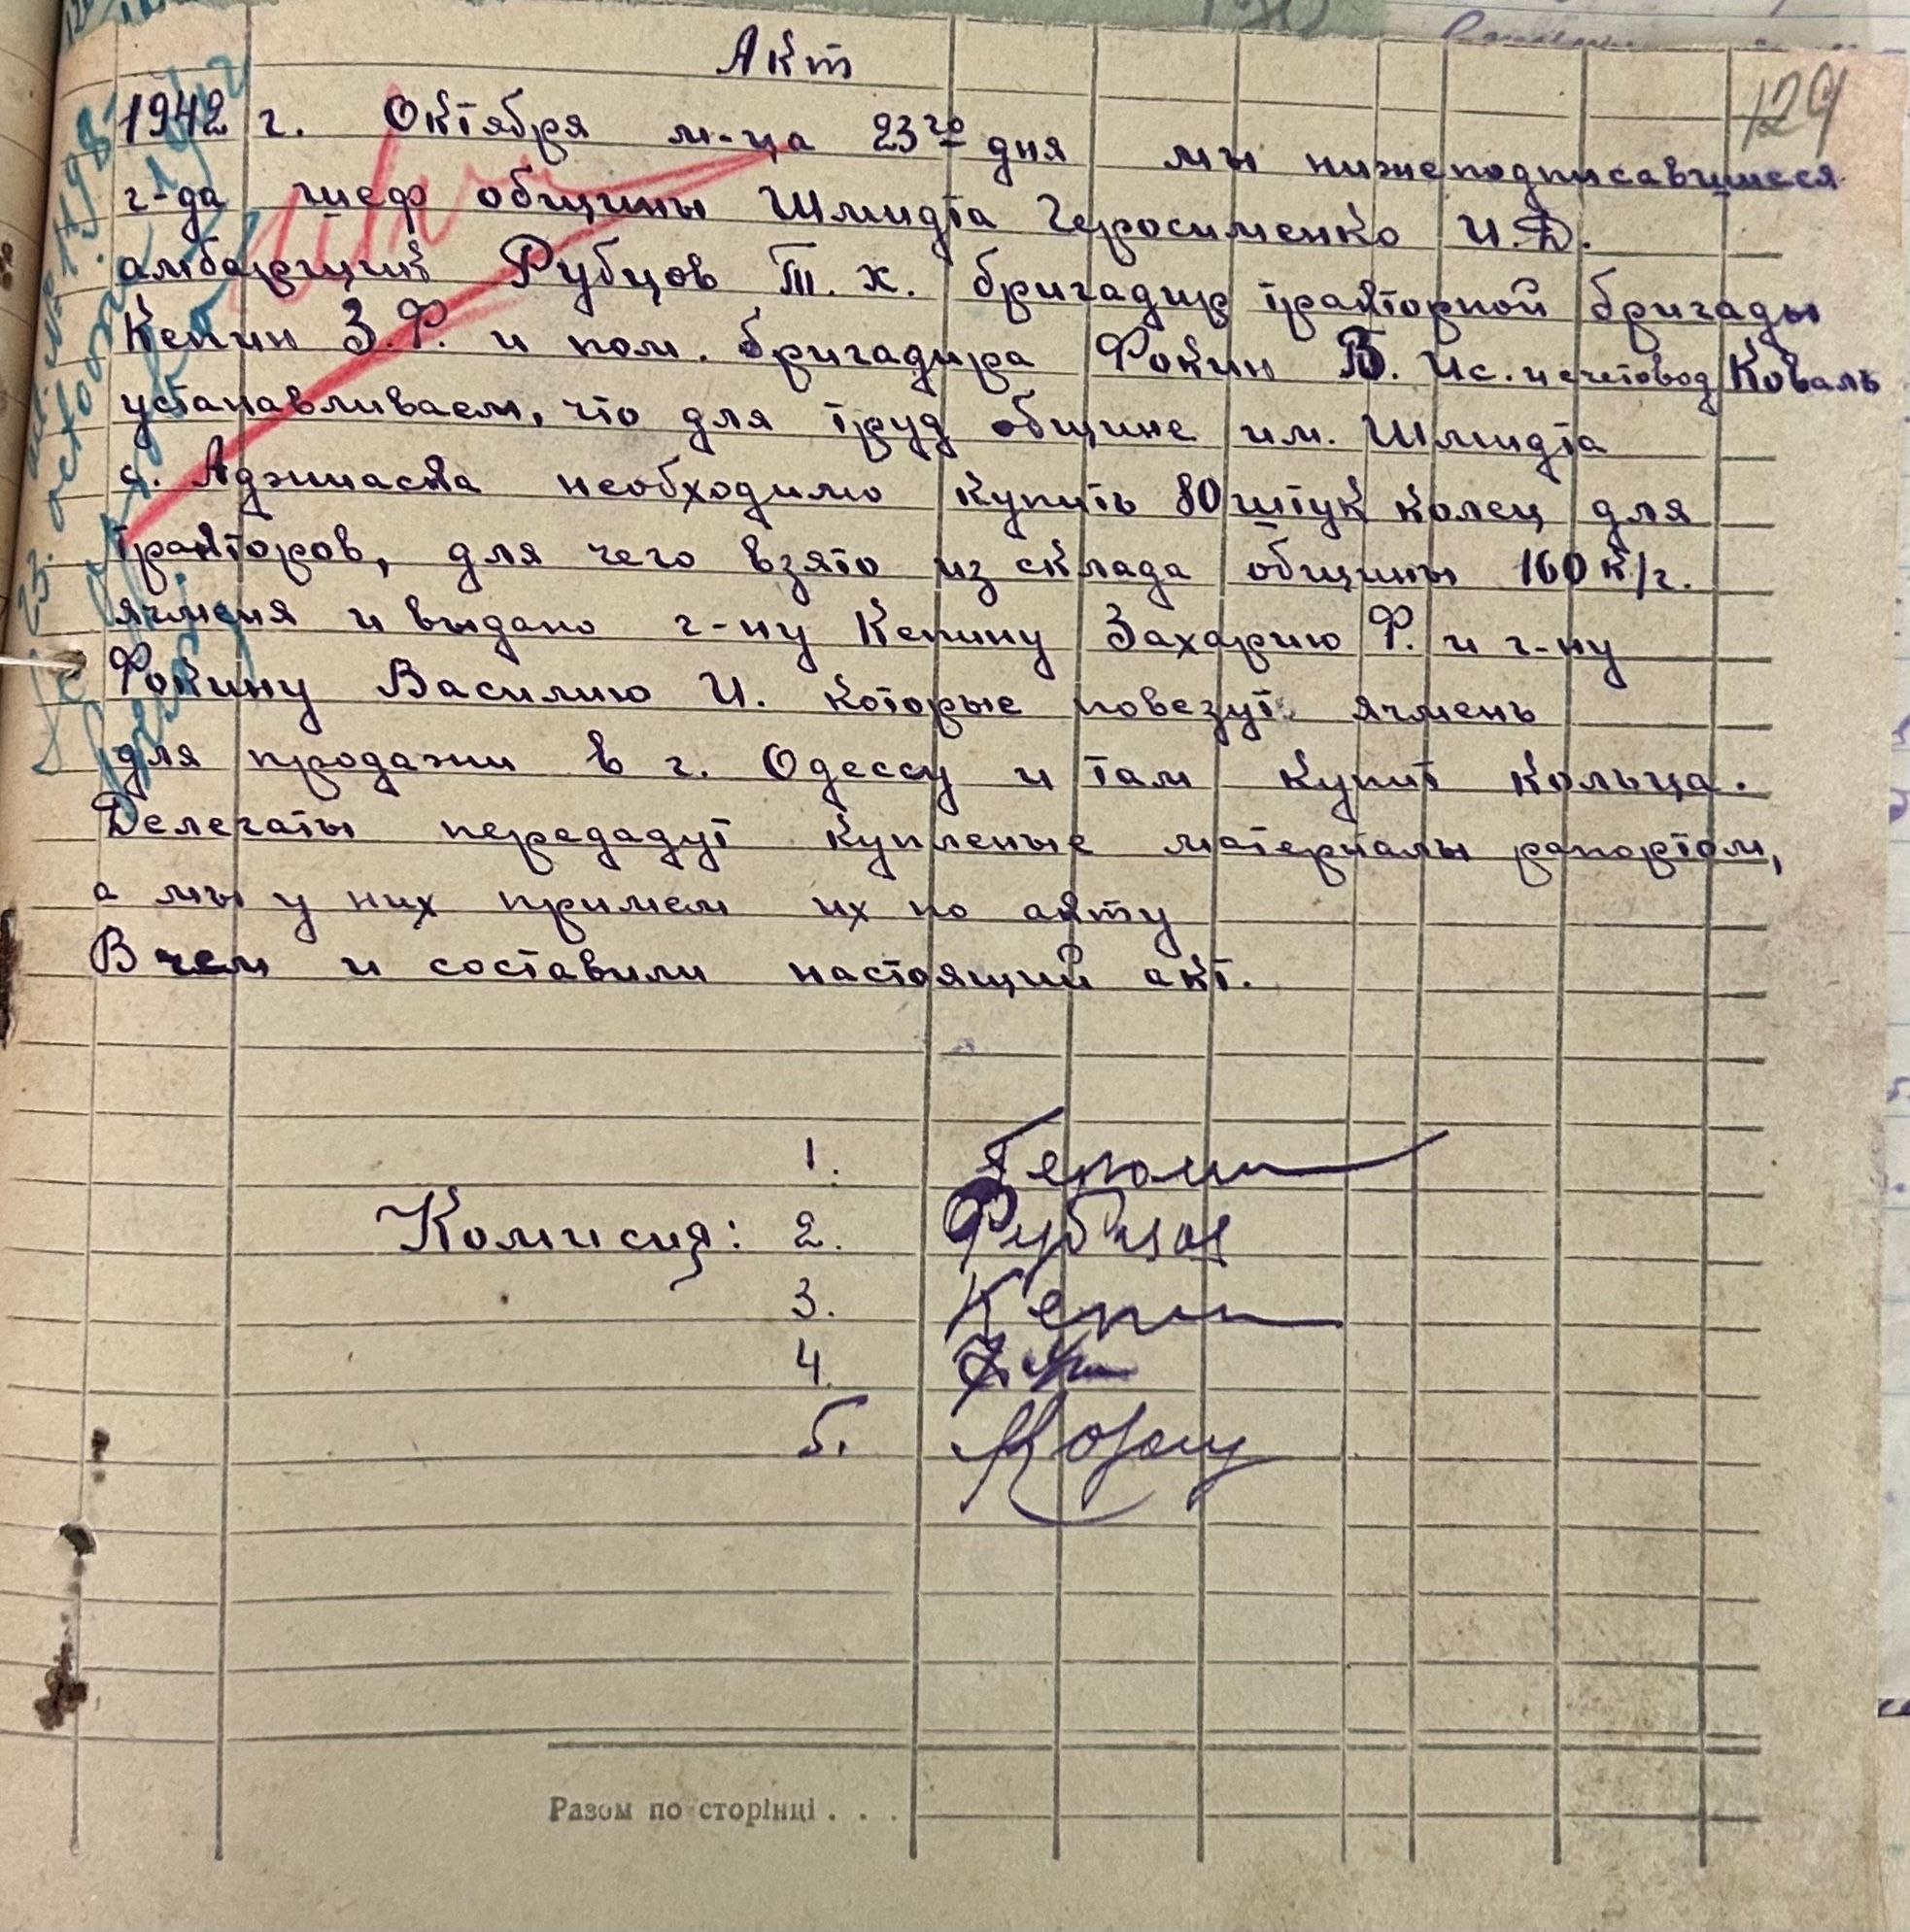 129
Акт
1942 г. Октября м-ца 23го дня мы нижеподписавшиеся
г-да шеф общины Шмидта Геросименко И.Д.
амбарщик Рубцов Т. Х. бригадир тракторной бригады
Кепин З.Ф. и пом. бригадира Фокин В. Ис. и счетовод Коваль
устанавливаем, что для труд общине им. Шмидта
с. Аджиаска необходимо купить 80 штук колец для
тракторов, для чего взято из склада общины 160 к/г.
ячменя и выдано г-ну Кепину Захарию Ф. и г-ну
Фокину Василию И. которые повезут ячмень
для продажи в г. Одессу и там купит кольца.
Делегаты передадут купленые материалы рапортом,
а мы у них примем их по акту
В чем и составили настоящий акт.
1.
Комисия: 2. Рубцов
3. Кепин
4.
5.
Разом по сторінці . . .
23. octobrie 1942